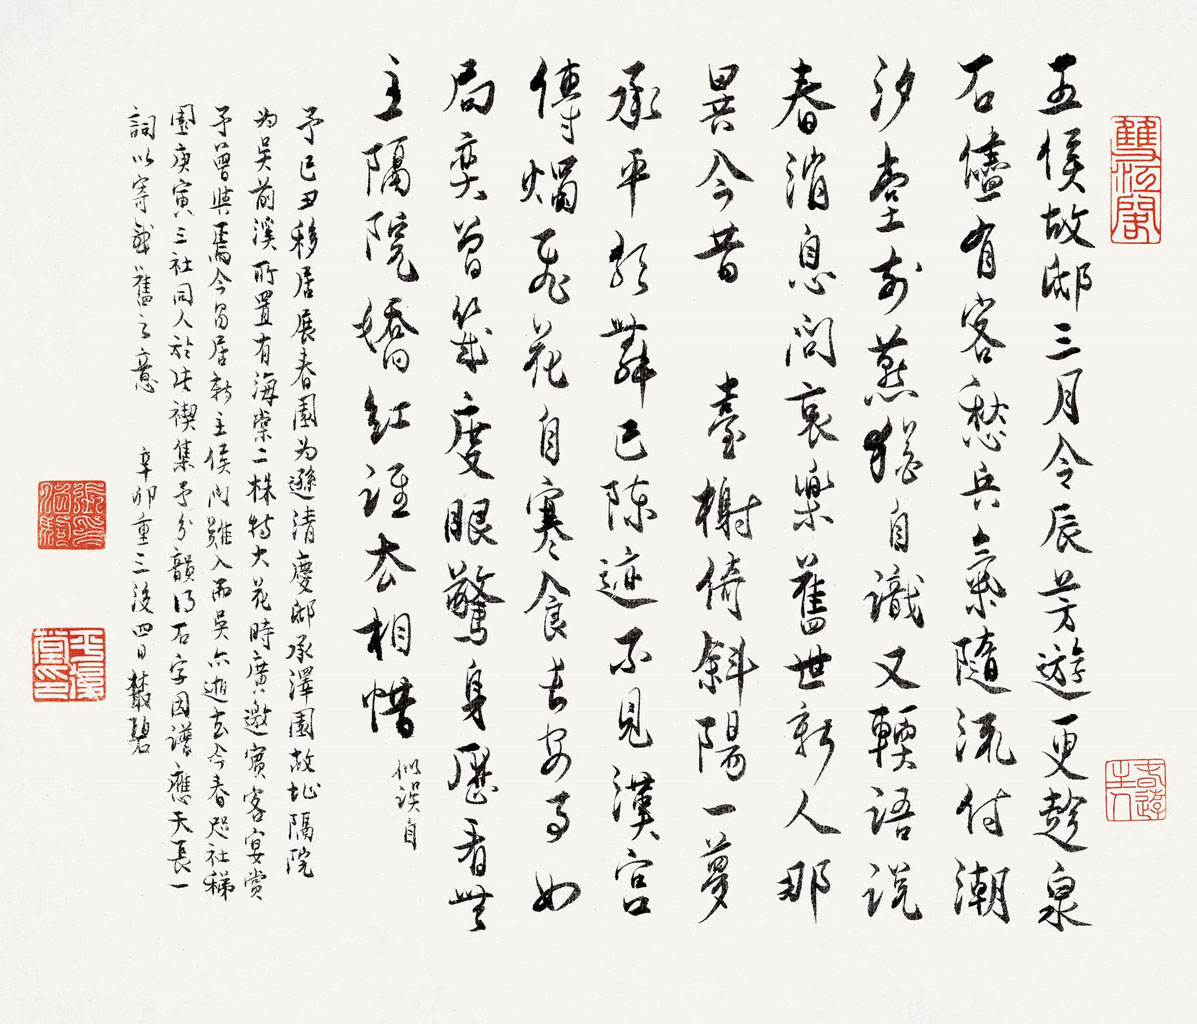 王侯故邸三月令辰芳遊更趁泉
石儘有客愁兵氣隨流付潮
汐堂前燕猶自識又輭語說
春消息問哀樂舊世新人那
異今昔 臺榭倚斜陽一夢
承平歌舞已陳迹不見漢宮
傳燭飛花自寒食長安事如
局奕曾幾度眼驚身歷看無
主隔院嬌紅誰去相惜 似誤自
予己丑移居展春園為遜清慶邸承澤園故址隔院
為吳前溪所置有海棠二株特大花時廣邀賓客宴賞
予曾與焉今易居新主侯門難入而吳亦逝去今春咫社稊
園庚寅三社同人於此禊集予分韻得石字因譜應天長一
詞以寄感舊之意 辛卯重三後四日叢碧
春遊主人
張伯駒印
平復堂印